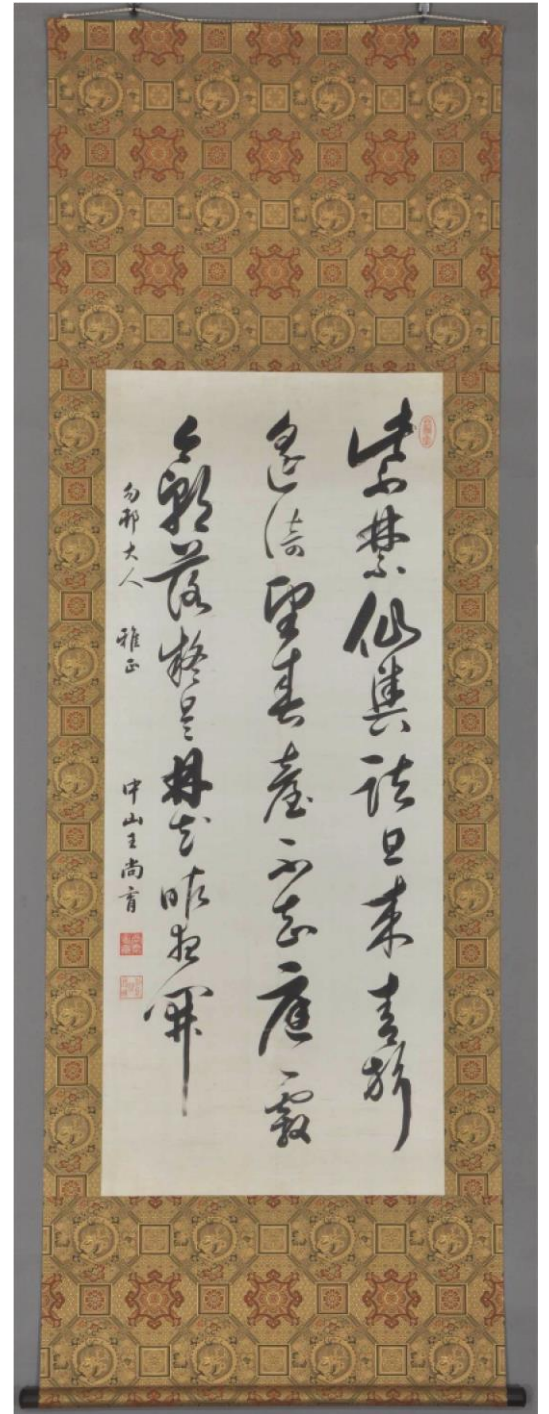 紫禁仙輿詰旦来青旂
遥倚望春臺不知庭霰
今朝落疑是林花昨夜開
大人 雅正 中山王尚育